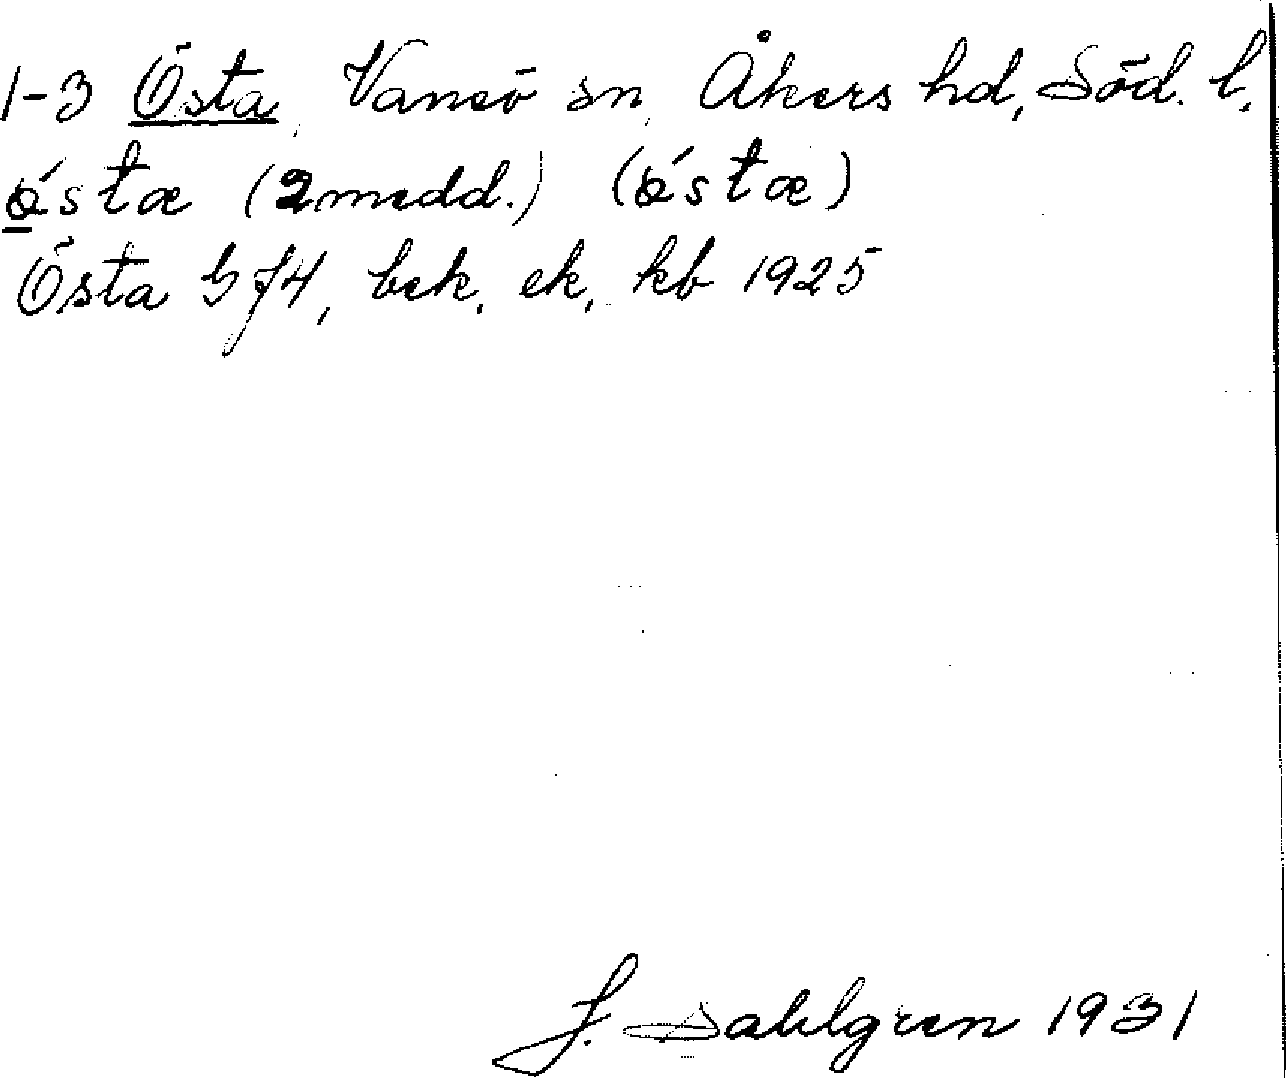 1-3 Östa, Vansö sn, Åkers hd, Söd. l.
ǿsta (2 medd.) (ǿsta)
Östa by f4, bek, ek, kb 1925
J. Sahlgren 1931